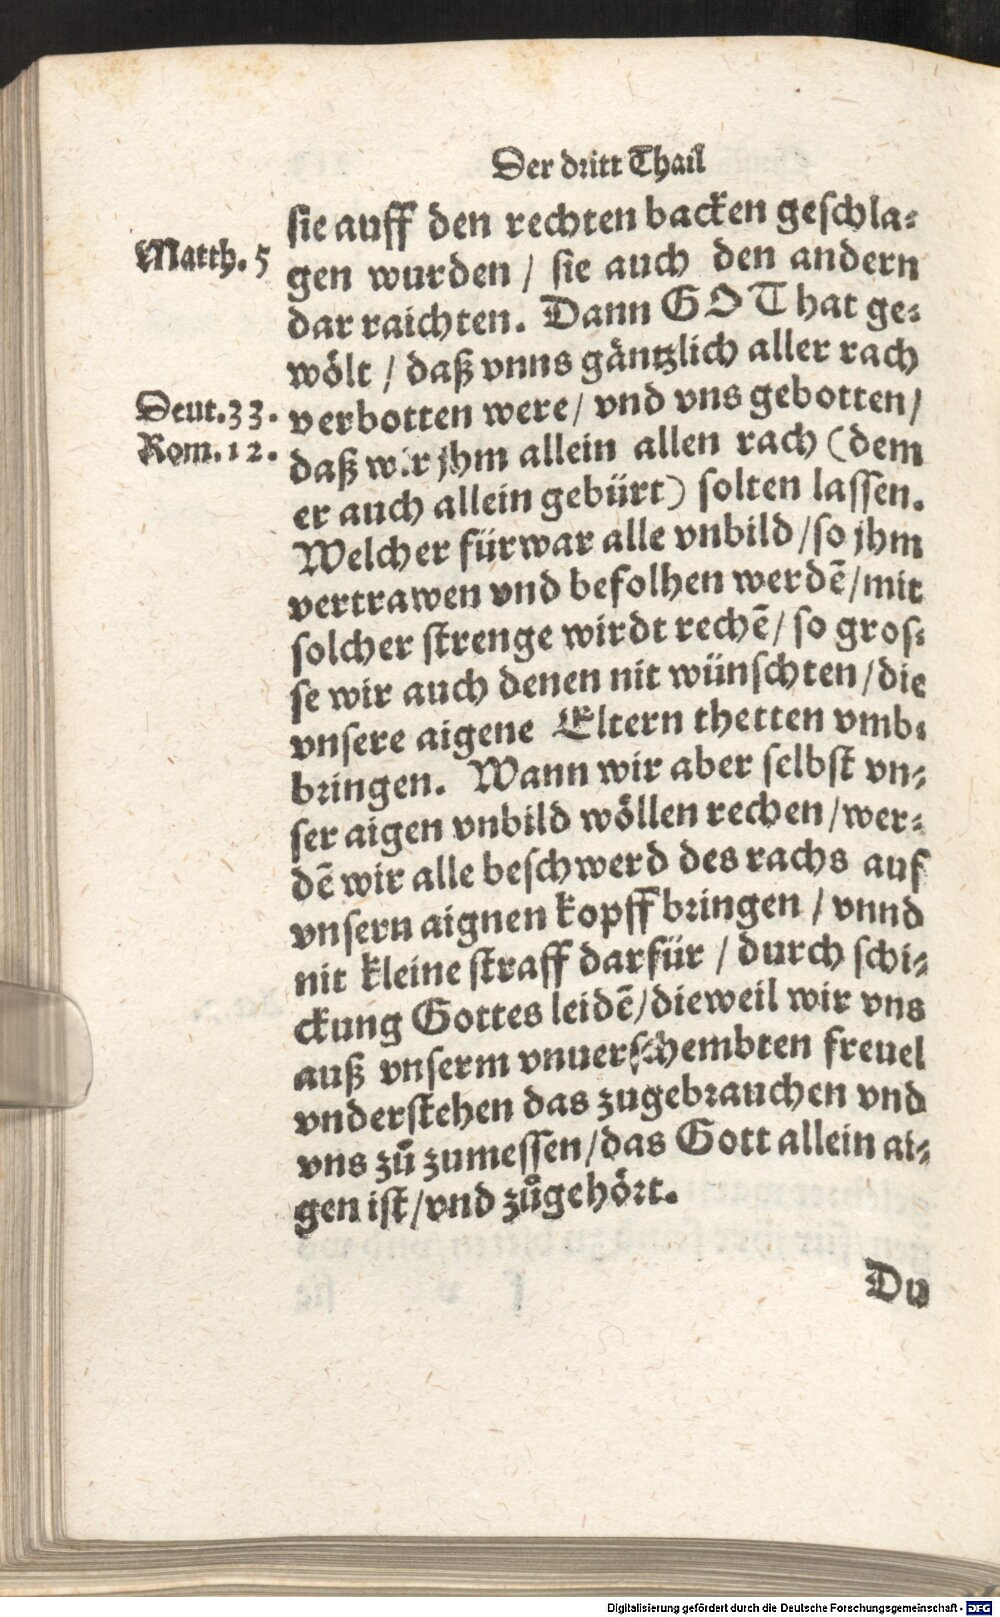 Der dritt Thail
sie auff den rechten backen geschla-
Matth. 5
gen wurden / sie auch den andern
dar raichten. Dann GOT hat ge-
wölt / daß vnns gäntzlich aller rach
Deut. 33.
verbotten were / vnd vns gebotten /
Rom. 12.
daß wir jhm allein allen rach (dem
er auch allein gebürt) solten lassen.
Welcher fürwar alle vnbild / so jhm
vertrawen vnd befolhen werdẽ / mit
solcher strenge wirdt rechẽ / so gros-
se wir auch denen nit wünschten / die
vnsere aigene Eltern thetten vmb-
bringen. Wann wir aber selbst vn-
ser aigen vnbild wöllen rechen / wer-
dẽ wir alle beschwerd des rachs auf
vnsern aignen kopff bringen / vnnd
nit kleine straff darfür / durch schi-
ckung Gottes leidẽ / dieweil wir vns
auß vnserm vnuerschembten freuel
vnderstehen das zugebrauchen vnd
vns zů zumessen / das Gott allein ai-
gen ist / vnd zůgehört.
Du
Digitalisierung gefördert durch die Deutsche Forschungsgemeinschaft - DFG